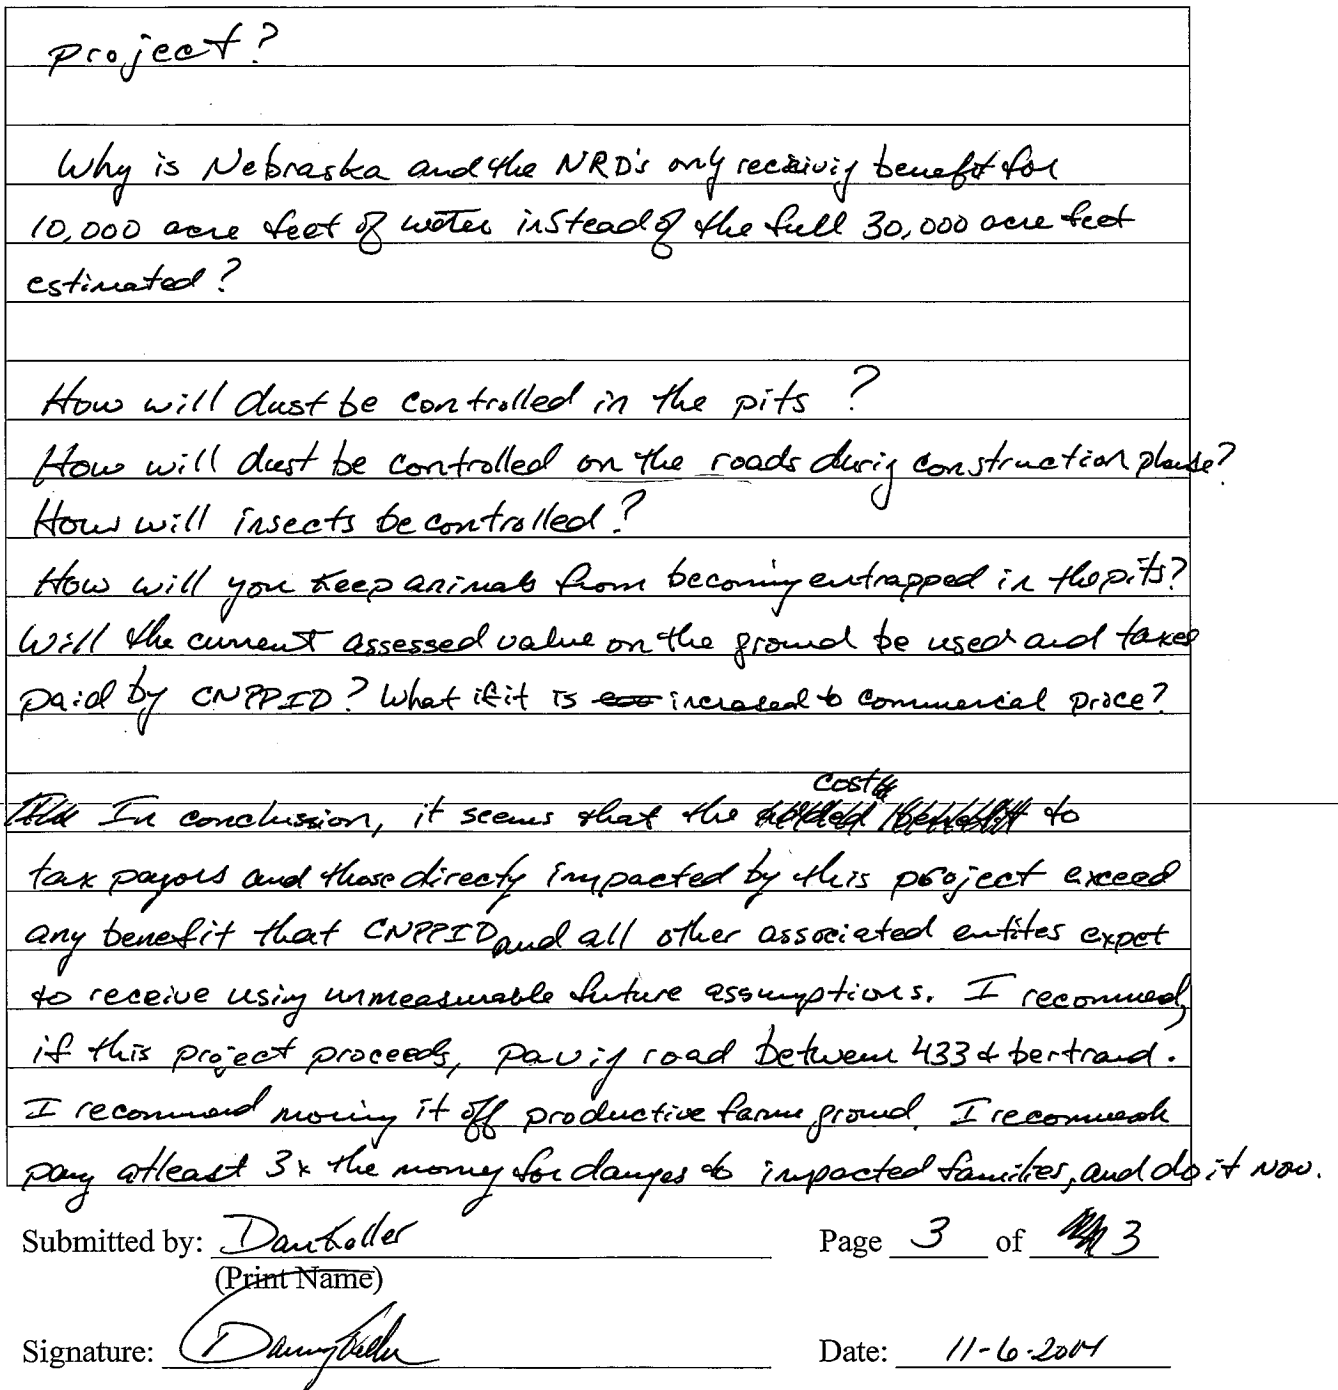 project?
Why is Nebraska and the NRD's only receiving benefit for
10,000 acre feet of water instead of the full 30,000 acre feet
estimated?
How will dust be controlled in the pits?
How will dust be controlled on the roads durig construction phase?
How will insects be controlled?
How will you keep animals from becoming entrapped in the pits?
Will the current assessed value on the ground be used and taxes
paid by CNPPID? What if it is increased to commercial price?
costs
In conclusion, it seems that the to
tax payors and those directy impacted by this project exceed
any benefit that CNPPID and all other associated entites expet
to receive using unmeasurable future assumptions. I recommed,
if this project proceeds, pavig road between 433 & bertrand.
I recommend moving it off productive farm ground. I recommend
pay atleast 3x the money for danges to impacted families, and do it now.
Submitted by: Dan Koller Page 3 of 3
(Print Name)
Signature: Danny Date: 11-6-